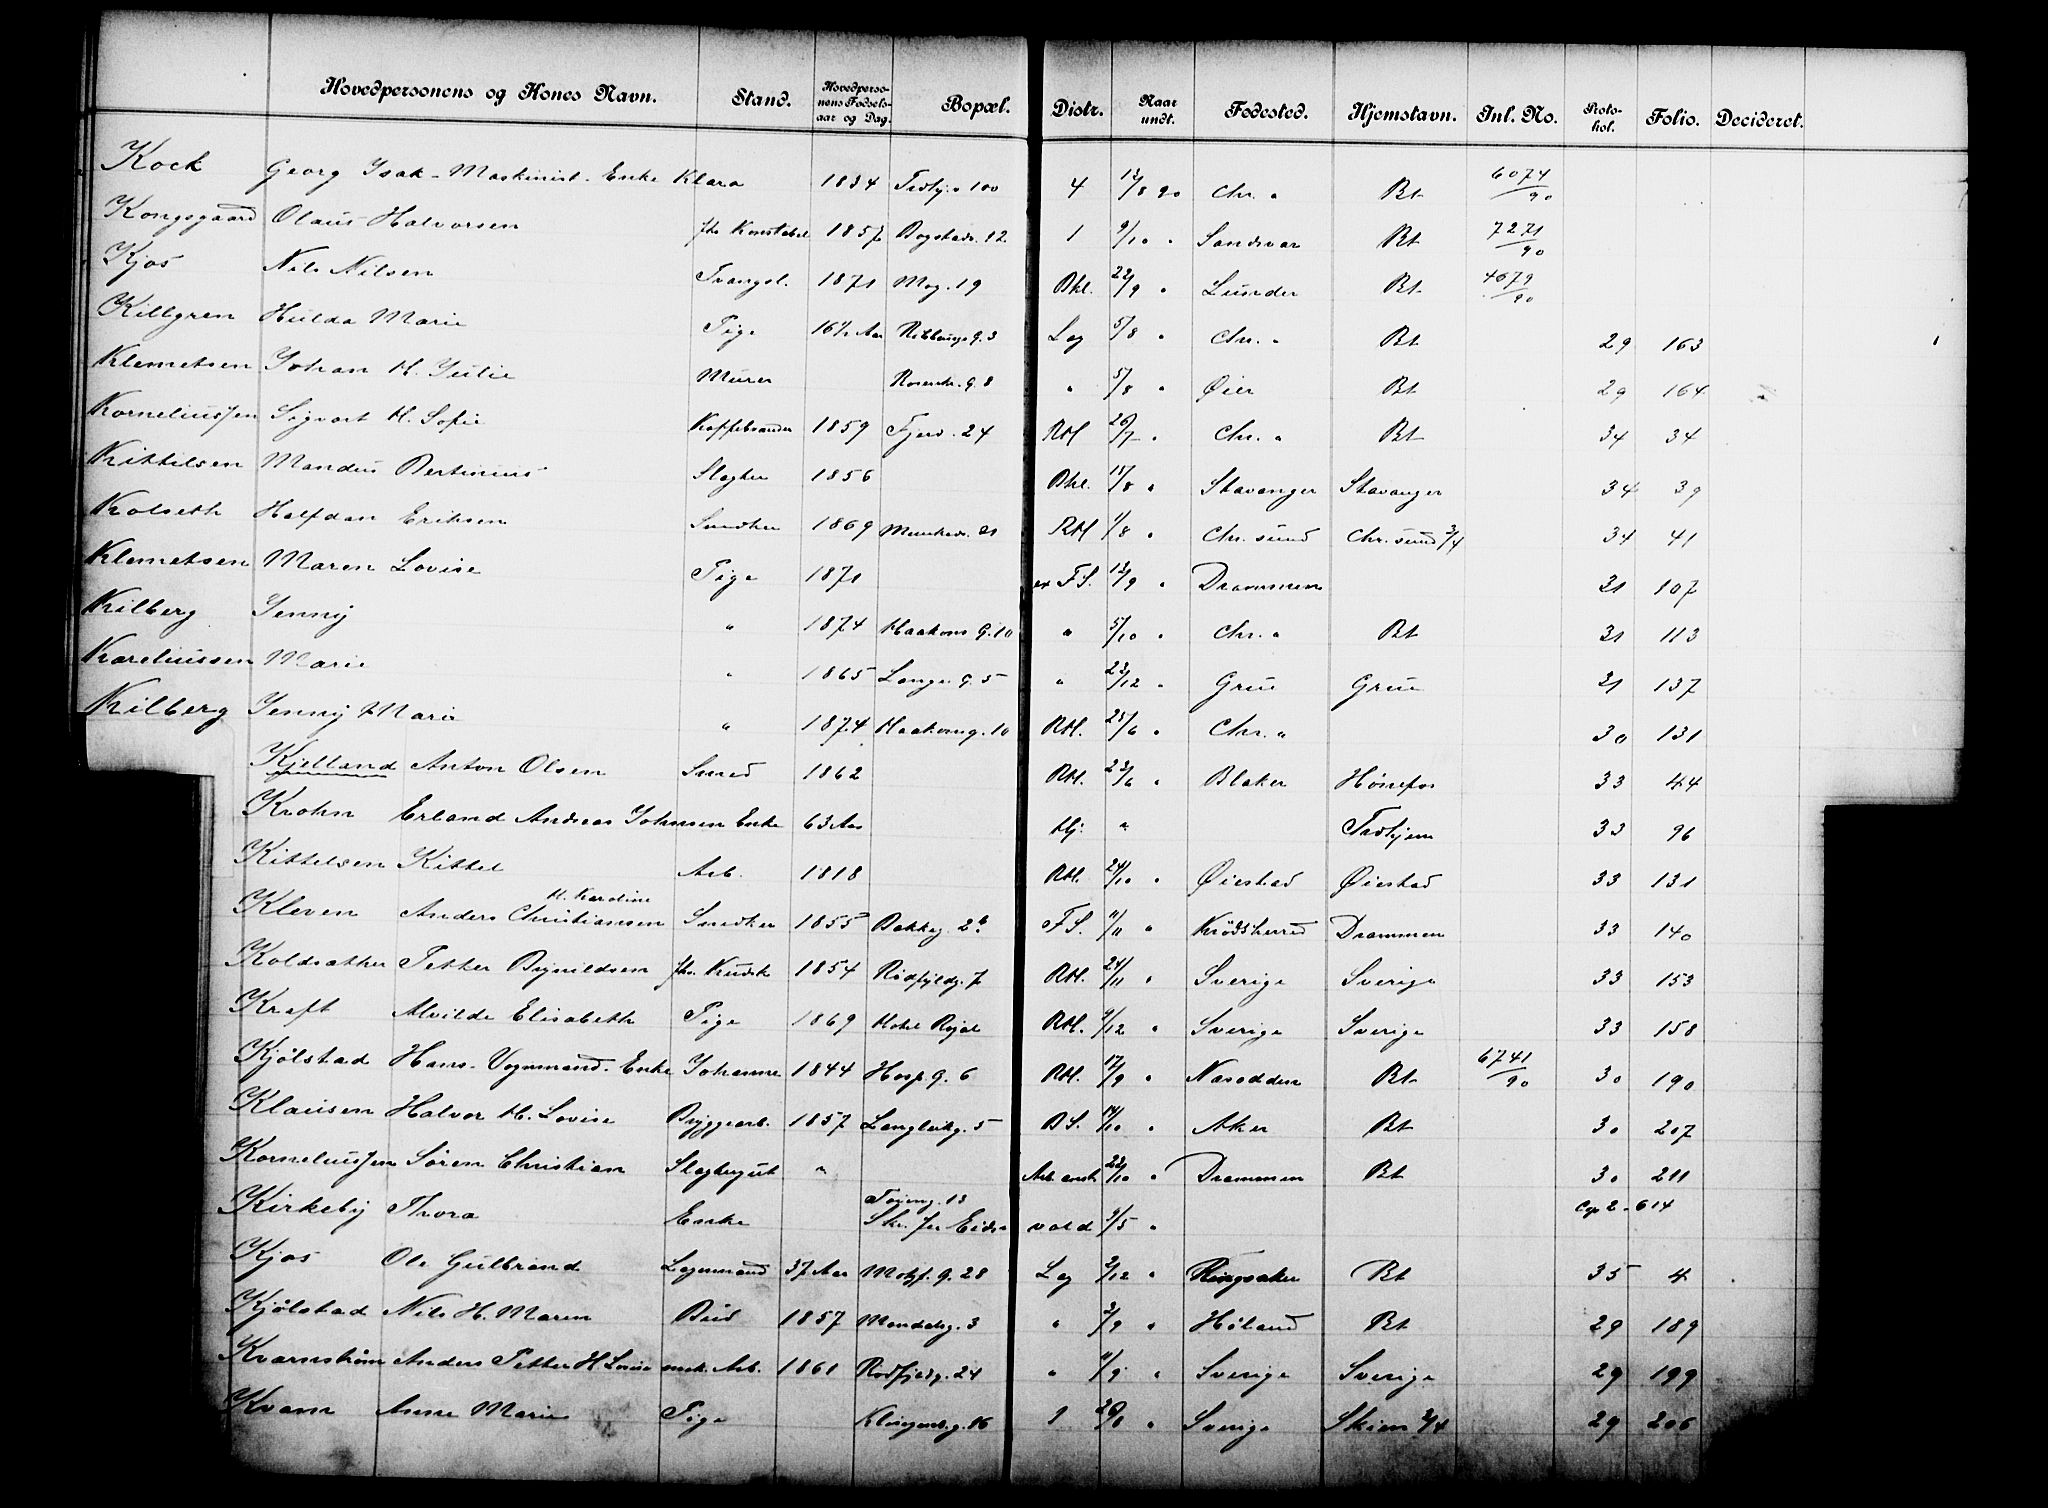 Hovedpersonens og Kones Navn. Stand. Hovedpersonens Fødselsaar og Dag. Bopæl. Distr. Naar undt. Fødested. Hjemstavn. Inl. No. Protokol. Folio. Decideret.
Kock Georg Isak - Maskinist. Enke Klara 1834 100 4 12/8 90 Chr. " Bt 6074/90
Kongsgaard Olaus Halvorsen fhv Konstabel 1857 Bogstadv. 12 1 9/10 " Sandsvær Bt 7271/90
Kjos Nils Nilsen Tvangsl. 1871 Mog. 19 Bkl. 22/9 " Lunder Bt 4679/90
Killgren Hulda Marie Pige 16 1/2 Aar g. 3 Lg 5/8 " Chr. " Bt 29 163
Klemetsen Johan H. Julie Murer Rosenkr. g. 8 " 5/8 " Øier Bt 29 164
Korneliussen Sigvart H. Sofie Kaffebrænder 1859 Fjerd. 24 RH 26/7 " Chr. " Bt 34 34
Kittilsen Mandus Bertinius Slagter 1856 Bkl. 18/8 " Stavanger Stavanger 34 39
Kolseth Halfdan Eriksen Snedker 1869 Munkedv. 21 RH 1/8 " Chr. sund Chr. sund 3/4 34 41
Klemetsen Maren Lovise Pige 1871 FS. 12/9 " Drammen 31 107
Kilberg Jenny " 1874 Haakons g. 10 " 5/10 " Chr. " Bt 31 113
Kareliussen Marie " 1865 Lange g. 5 " 23/12 " Grue Grue 31 137
Kilberg Jenny Marie " 1874 Haakonsg. 10 RH. 25/6 " Chr. " 30 131
Kjelland Anton Olsen Smed 1862 RH. 23/6 " Blaker Hønefos 33 44
Krohn Erland Andreas Johnsen Enke 63 Aar Hj. " Trdhjem 33 96
Kittelsen Kittel Arb. 1818 RH. 24/10 " Øiestad Øiestad 33 131
H. Karoline
Kleven Anders Christiansen Snedker 1855 Bakkeg. 2b FS. 11/11 " Krødsherred Drammen 33 140
Koldsæther Petter Bynildsen fhv. Kudsk 1854 Rødfyldg. 7 RH. 24/11 " Sverige Sverige 33 153
Kraft Alvilde Elisabeth Pige 1869 Hotel Royal RH. 9/12 " Sverige Sverige 33 158
Kjølstad Hans. Vognmand. Enke Johanne 1844 Hosp. g. 6 RH. 17/9 " Næsodden Bt 6741/90 30 190
Klausen Halvor H. Lovise Bryggearb. 1857 Langleikg. 5 BS. 14/10 " Aker Bt 30 207
Korneliussen Søren Christian Slagtergut " Arb. anst 22/10 " Drammen Bt 30 211
Kirkeby Thora Enke Tøieng. 13 Skr. fra Eidsvold 9/5 " Cop 2 - 614
Kjos Ole Gulbrand Lagermand 37 Aar Motzf. g. 28 Lg 2/12 " Ringsaker Bt 35 4
Kjølstad Nils H. Maren Bud 1857 Mandalsg. 3 " 3/9 " Høland Bt 29 189
Kvarnstrøm Anders Petter H. Lovise Arb. 1861 Rødfyldg. 24 " 11/9 " Sverige Sverige 29 199
Kvam Anne Marie Pige Klingenbg. 16 1 28/8 " Sverige Skien 3/4 29 206